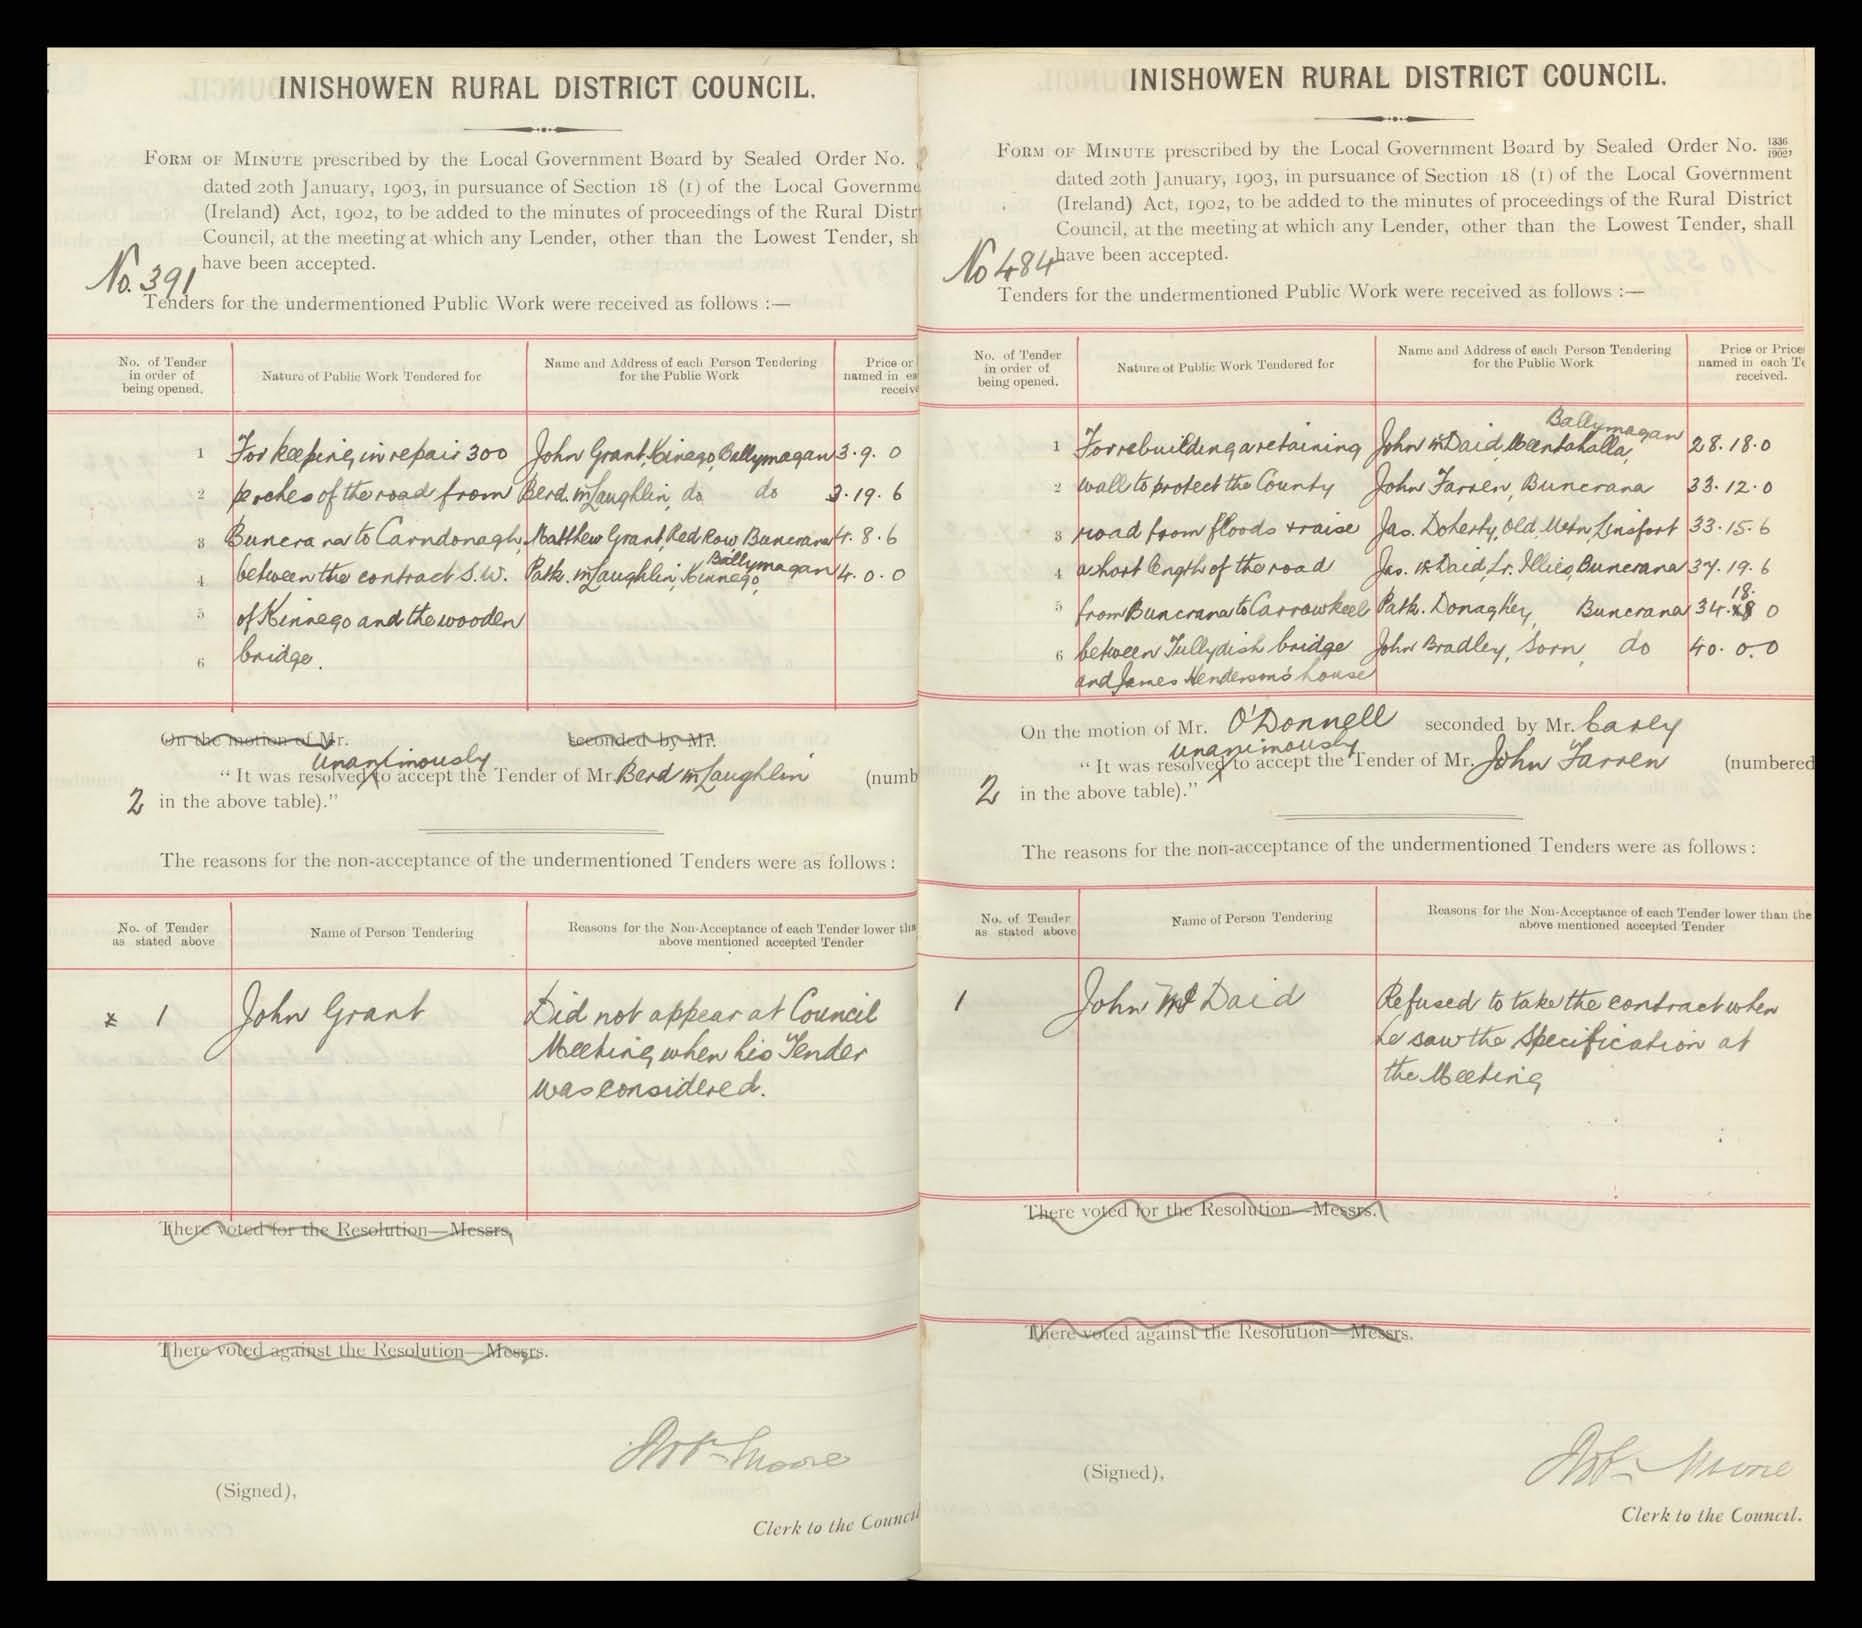 INISHOWEN RURAL DISTRICT COUNCIL.
FORM OF MINUTE prescribed by the Local Government Board by Sealed Order No.
dated 20th January, 1903, in pursuance of Section 18 (1) of the Local Governme
(Ireland) Act, 1902, to be added to the minutes of proceedings of the Rural Distr
Council, at the meeting at which any Lender, other than the Lowest Tender, sh
have been accepted.
No. 391
Tenders for the undermentioned Public Work were received as follows :—
No. of Tender in order of being opened.
Nature of Public Work Tendered for
Name and Address of each Person Tendering for the Public Work
Price or
named in ea
receiv
1 For keeping in repair 300 John Grant, Kinego, Ballymagan 3. 9. 0
2 perches of the road from Berd. McLaughlin, do do 3. 19. 6
3 Buncrana to Carndonagh, Matthew Grant, Red Row Buncrana 4. 8. 6
4 between the contract S.W. Patk. McLaughlin, Kinnego, Ballymagan 4. 0. 0
5 of Kinnego and the wooden
6 bridge.
On the motion of Mr. seconded by Mr.
unanimously
“ It was resolved to accept the Tender of Mr. Berd McLaughlin (numb
2 in the above table).”
The reasons for the non-acceptance of the undermentioned Tenders were as follows :
No. of Tender as stated above
Name of Person Tendering
Reasons for the Non-Acceptance of each Tender lower tha
above mentioned accepted Tender
x 1 John Grant Did not appear at Council
Meeting when his Tender
was considered.
There voted for the Resolution—Messrs.
There voted against the Resolution—Messrs.
Robt. Moore
(Signed),
Clerk to the Council
INISHOWEN RURAL DISTRICT COUNCIL.
FORM OF MINUTE prescribed by the Local Government Board by Sealed Order No. 1336/1902,
dated 20th January, 1903, in pursuance of Section 18 (1) of the Local Government
(Ireland) Act, 1902, to be added to the minutes of proceedings of the Rural District
Council, at the meeting at which any Lender, other than the Lowest Tender, shall
have been accepted.
No 484
Tenders for the undermentioned Public Work were received as follows :—
No. of Tender in order of being opened.
Nature of Public Work Tendered for
Name and Address of each Person Tendering for the Public Work
Price or Price
named in each Te
received.
1 For rebuilding a retaining John McDaid, Meentahalla, Ballymagan 28. 18. 0
2 wall to protect the County John Farren, Buncrana 33. 12. 0
3 road from floods & raise Jas. Doherty, Old Mtn, Linsfort 33. 15. 6
4 a short length of the road Jas. McDaid, Lr. Illies, Buncrana 37. 19. 6
5 from Buncrana to Carrowkeel Patk. Donaghey, Buncrana 34. 18. 0
6 between Tullydish bridge John Bradley, Sorn, do 40. 0. 0
and James Henderson's house
On the motion of Mr. O'Donnell seconded by Mr. Carey
unanimously
“ It was resolved to accept the Tender of Mr. John Farren (numbered
2 in the above table).”
The reasons for the non-acceptance of the undermentioned Tenders were as follows :
No. of Tender as stated above
Name of Person Tendering
Reasons for the Non-Acceptance of each Tender lower than the
above mentioned accepted Tender
1 John McDaid Refused to take the contract when
he saw the specification at
the Meeting
There voted for the Resolution—Messrs.
There voted against the Resolution—Messrs.
Robt. Moore
(Signed),
Clerk to the Council.